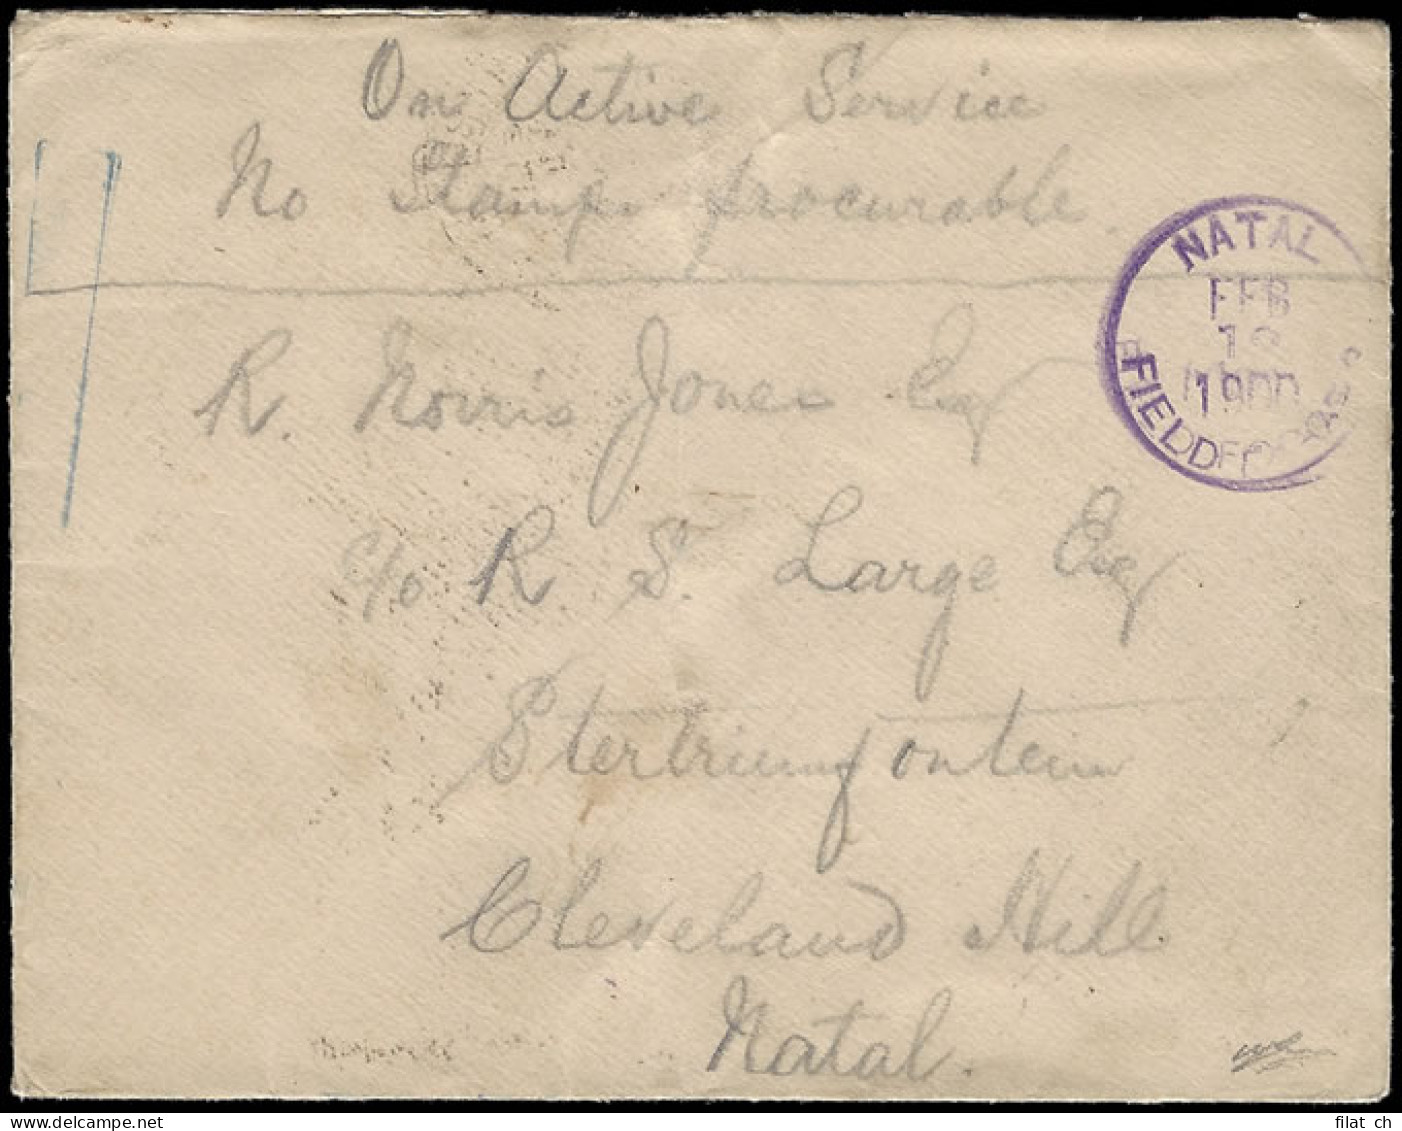 On Active Service
No Stamps procurable.
NATAL
FEB
1900
FIELD FORCE
R. Norris Jones Esq
c/o R S. Large Esq
Stertriumfontein
Cleveland Hill
Natal.
filat ch